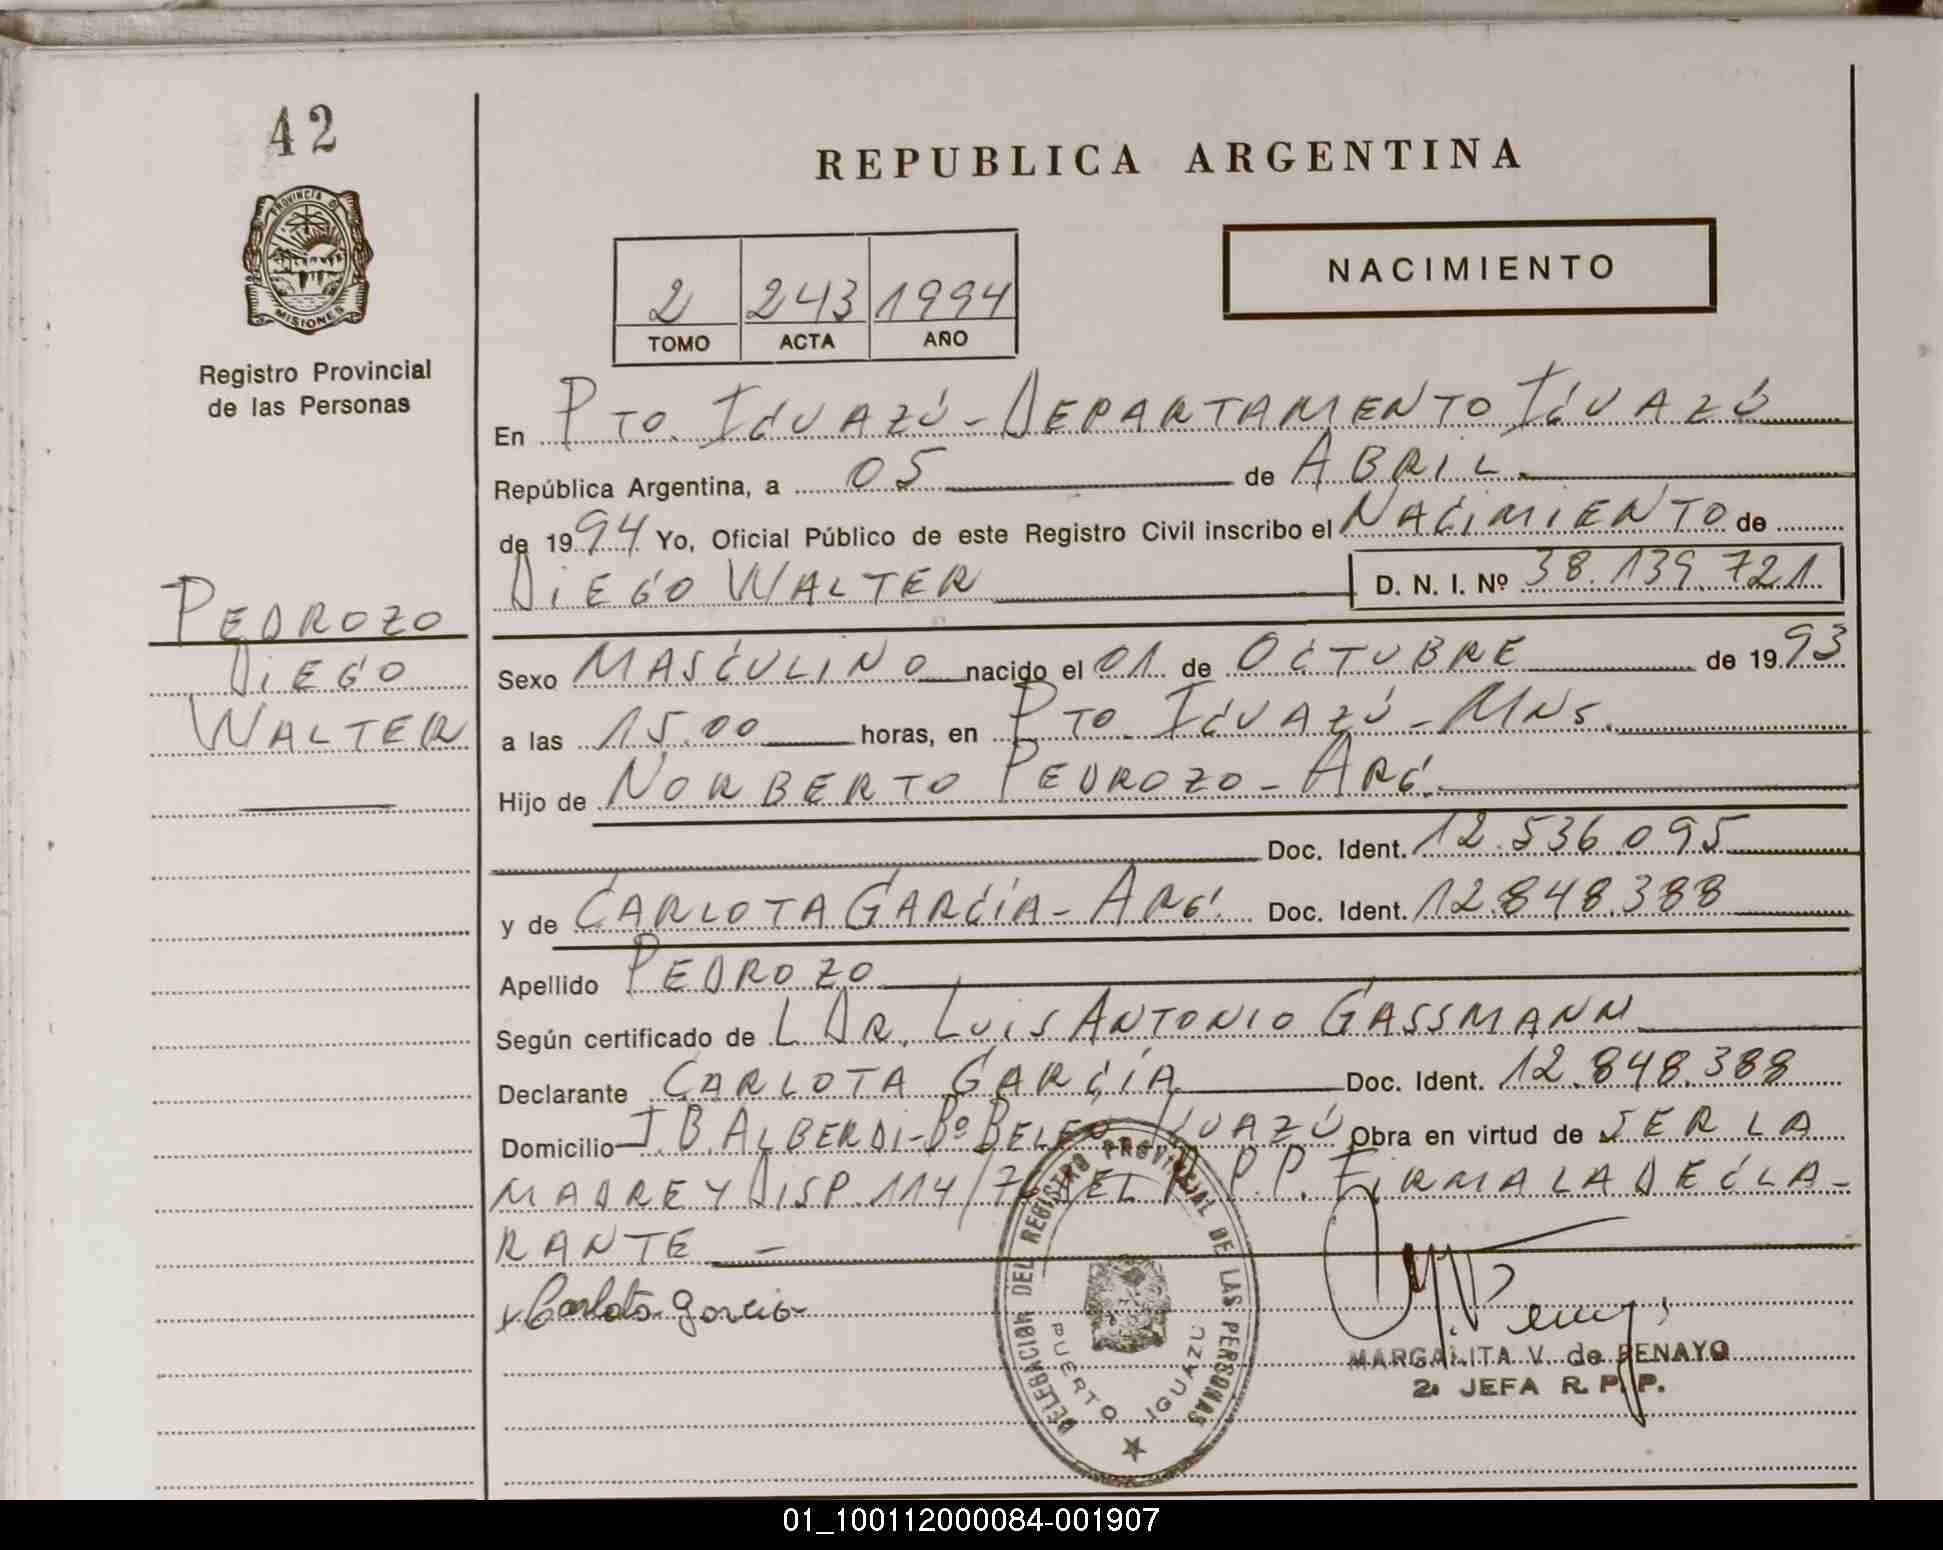 42
PROVINCIA DE
MISIONES
Registro Provincial
de las Personas
PEDROZO
DIEGO
WALTER
REPUBLICA ARGENTINA
NACIMIENTO
2 243 1994
TOMO ACTA AÑO
En PTO. IGUAZÚ - DEPARTAMENTO IGUAZÚ
República Argentina, a 05 de ABRIL
de 1994 Yo, Oficial Público de este Registro Civil inscribo el NACIMIENTO de
DIEGO WALTER D. N. I. Nº 38.139.721
Sexo MASCULINO nacido el 01 de OCTUBRE de 1993
a las 15.00 horas, en PTO. IGUAZÚ - MNS.
Hijo de NORBERTO PEDROZO - ARG.
Doc. Ident. 12.536.095
y de CARLOTA GARCÍA - ARG. Doc. Ident. 12.848.388
Apellido PEDROZO
Según certificado de L DR. LUIS ANTONIO GASSMANN
Declarante CARLOTA GARCÍA Doc. Ident. 12.848.388
Domicilio J.B. ALBERDI - Bº BELEN IGUAZÚ Obra en virtud de SER LA
MADRE Y DISP. 114/76 DEL R.P.P. FIRMA LA DECLA-
RANTE -
x Carlota Garcia
DELEGACION DEL REGISTRO PROVINCIAL DE LAS PERSONAS
PUERTO IGUAZU
MARGARITA V. de BENAYO
2ª JEFA R. P. P.
01_100112000084-001907